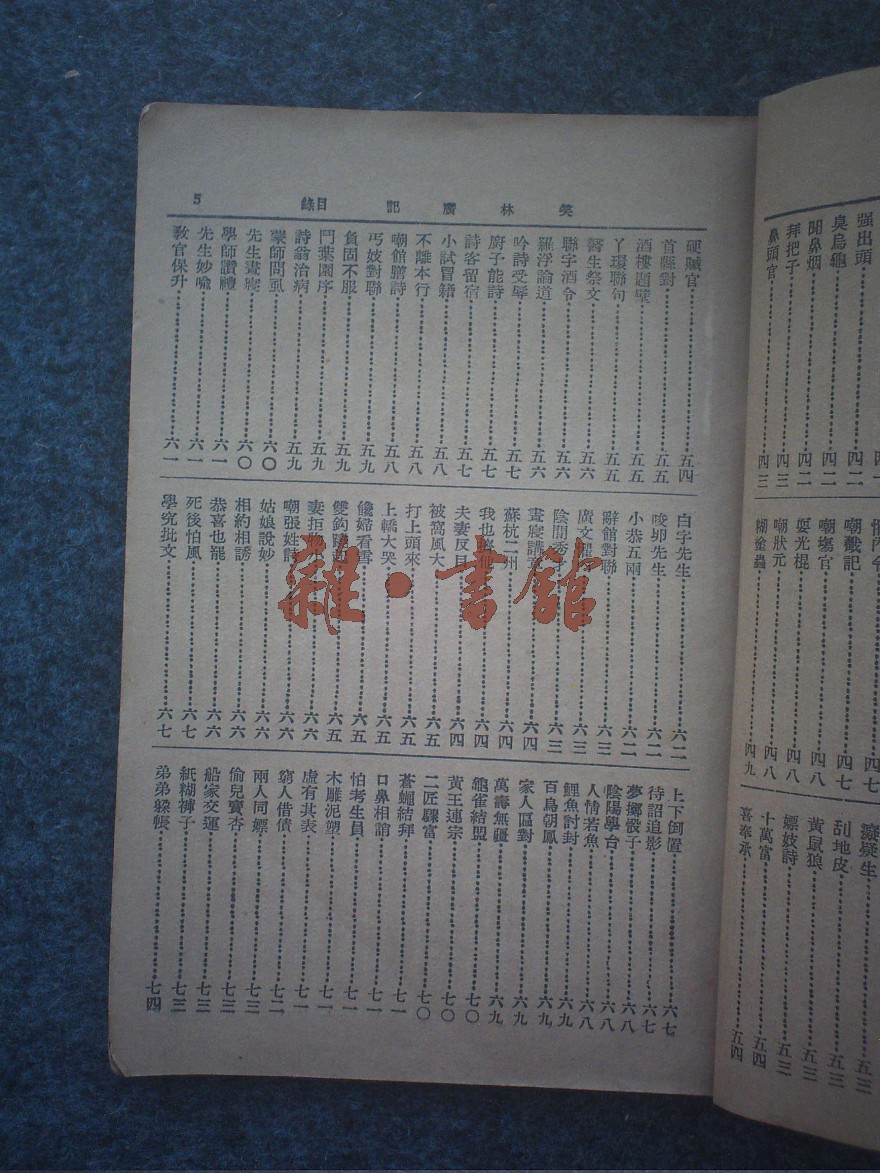 笑林廣記 目錄 5
硬贓官 五四
首縣對 五五
酒樓題壁 五五
丫環聯句 五五
醫生祭文 五六
聯字酒令 五六
羅浮論道 五六
吟詩受辱 五七
廚子能詩 五七
詩客留宿 五七
小試冒籍 五八
不離本行 五八
嘲館膳詩 五八
丐妓對聯 五九
負固不服 五九
鬥葉園序 五九
詩翁治病 五九
蒙師問虱 六〇
先生晝寢 六〇
學師讚禮 六一
先生妙喻 六一
教官保升 六一
白字先生 六二
唆卵先生 六二
小恭五兩 六二
辭館對聯 六三
廣文 六三
陰間秀 六三
晝寢講 六四
蘇杭二州 六四
我也 六四
夫妻反目 六四
被窩風大 六五
打上頭來 六五
上轎大哭 六五
饞婦看雪 六五
雙鈎 六五
妻拒 六六
嘲張姓詩 六六
姑娘說妙 六六
相約相誘 六六
恭喜也罷 六六
死後怕風 六七
學究批文 六七
上下倒置 六七
待詔追影 六七
夢擲骰子 六八
陰陽學台 六八
人情若魚 六八
鯉魚討封 六九
百鳥朝鳳 六九
家人區對 六九
萬壽無疆 六九
龜雀結盟 七〇
黃王連宗 七〇
二匠驟富 七〇
蒼蠅結拜 七一
口鼻相誚 七一
怕考生員 七一
木雕泥塑 七一
虛有其表 七一
窮人借債 七二
兩人同嫖 七三
偷兒賣杏 七三
船家交運 七三
紙糊褲子 七三
弟弟躲帳 七四
強出頭
臭烏龜 四二
聞鼻烟 四二
拜把子 四三
鼻頭官 四三
嘲戳記 四七
嘲塲官 四八
耍光棍 四八
嘲狀元 四八
糊塗蟲 四九
癡疑生 五三
刮地皮 五三
黃鼠狼 五三
嫖妓詩 五三
十萬富 五四
喜奉承 五四
雜·書館